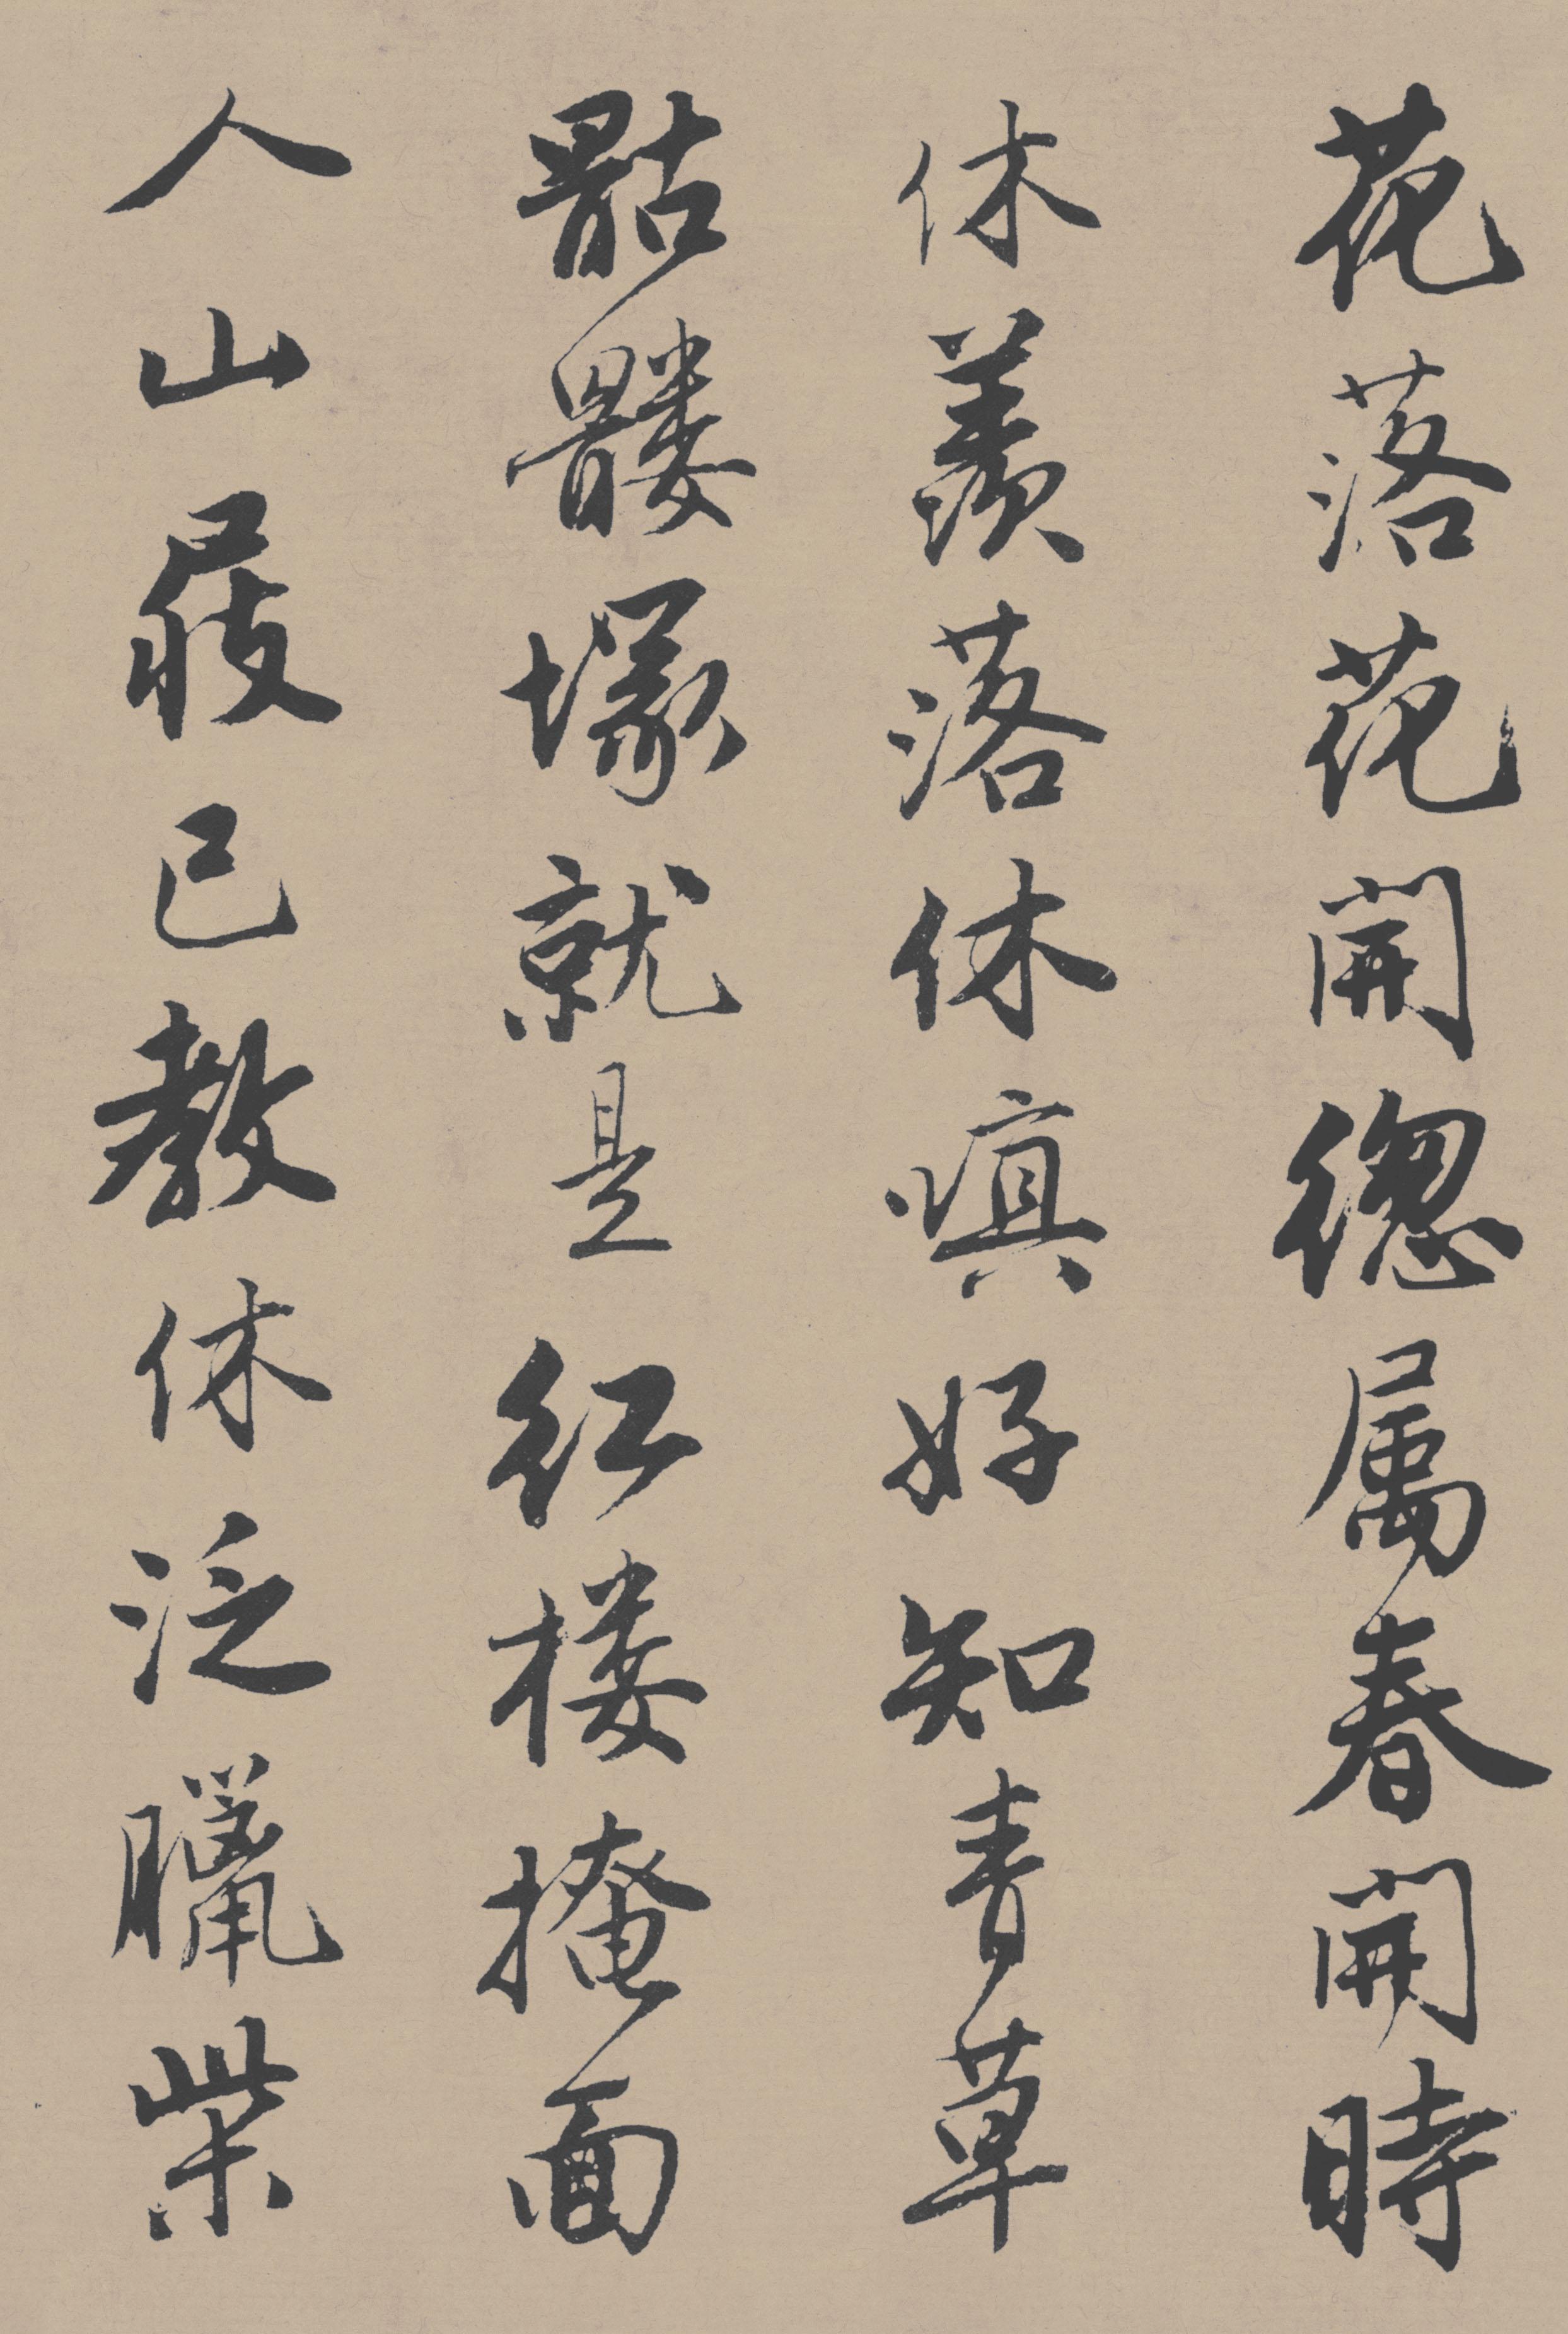 花落花開總屬春開時
休羨落休嗔好知青草
骷髏塚就是紅樓掩面
人山屐已教休泛蠟柴